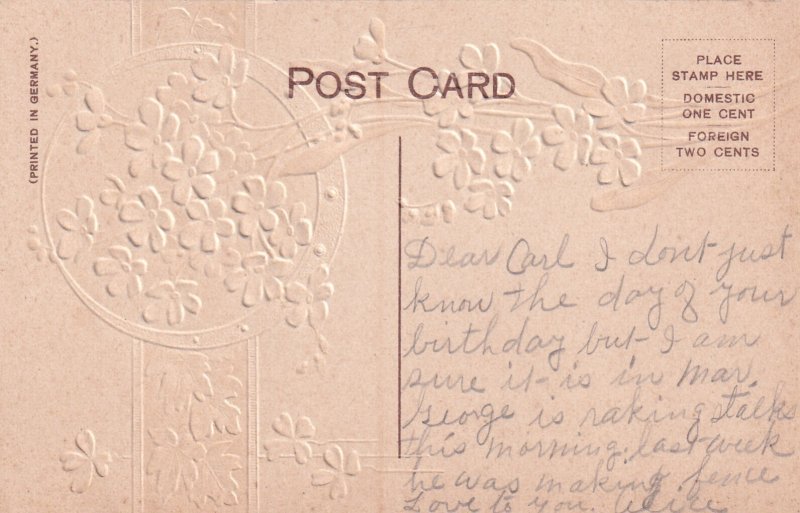 (PRINTED IN GERMANY.)
POST CARD
PLACE
STAMP HERE
DOMESTIC
ONE CENT
FOREIGN
TWO CENTS
Dear Carl I dont just
know the day of your
birthday but I am
sure it is in Mar.
George is raking stalks
this morning. last week
he was making fence
Love to you. Alice